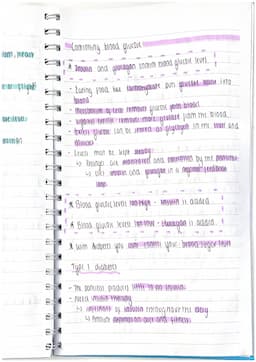 Controlling blood glucose
* Insulin and glucagon control blood glucose level
- Eating food has carbohydrate puts glucose into blood
- Metabolism of cells removes glucose from blood
- removes more glucose from the blood
- Excess glucose can be stored as glycogen in the liver and muscles
- Levels must be kept steady
↳ changes are monitored and controlled by the pancreas
↳ uses insulin and glucagon in a negative feedback loop
* Blood glucose level too high - insulin is added
* Blood glucose level too low - glucagon is added
* With diabetes you can't control your blood sugar level
Type 1 diabetes
- The pancreas produces little to no insulin
- Need insulin therapy
↳ injections of insulin throughout the day
↳ Amount depends on diet and fitness